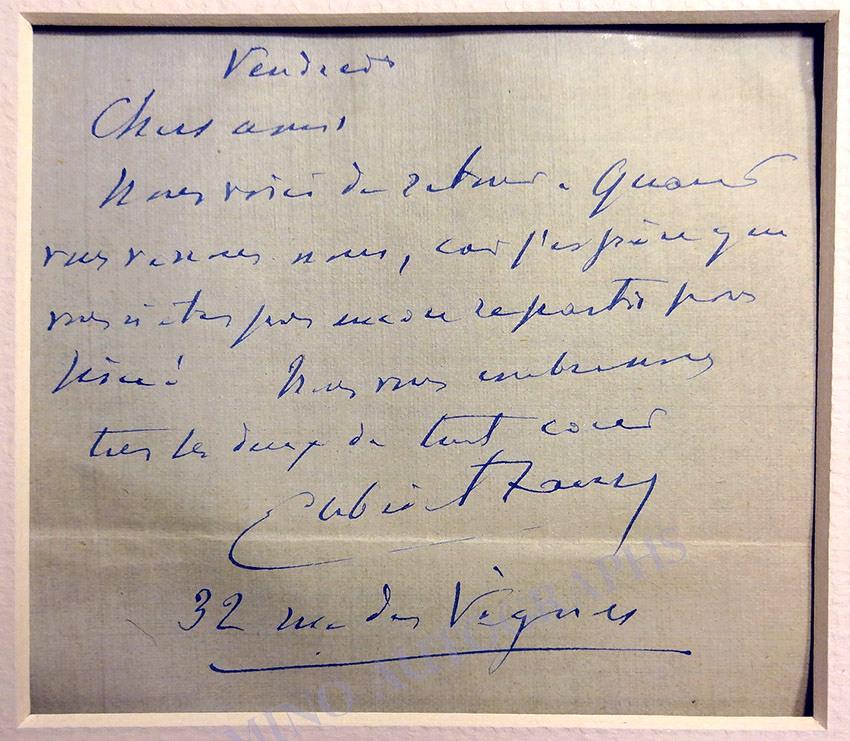 Vendredi
Chers amis
Nous voici de retour. Quand
vous verrons nous, car j'espère que
vous n'êtes pas encore repartis pour
Nous vous embrassons
tous les deux de tout coeur
Fauré
32 rue des Vignes
MINO AUTOGRAPHS